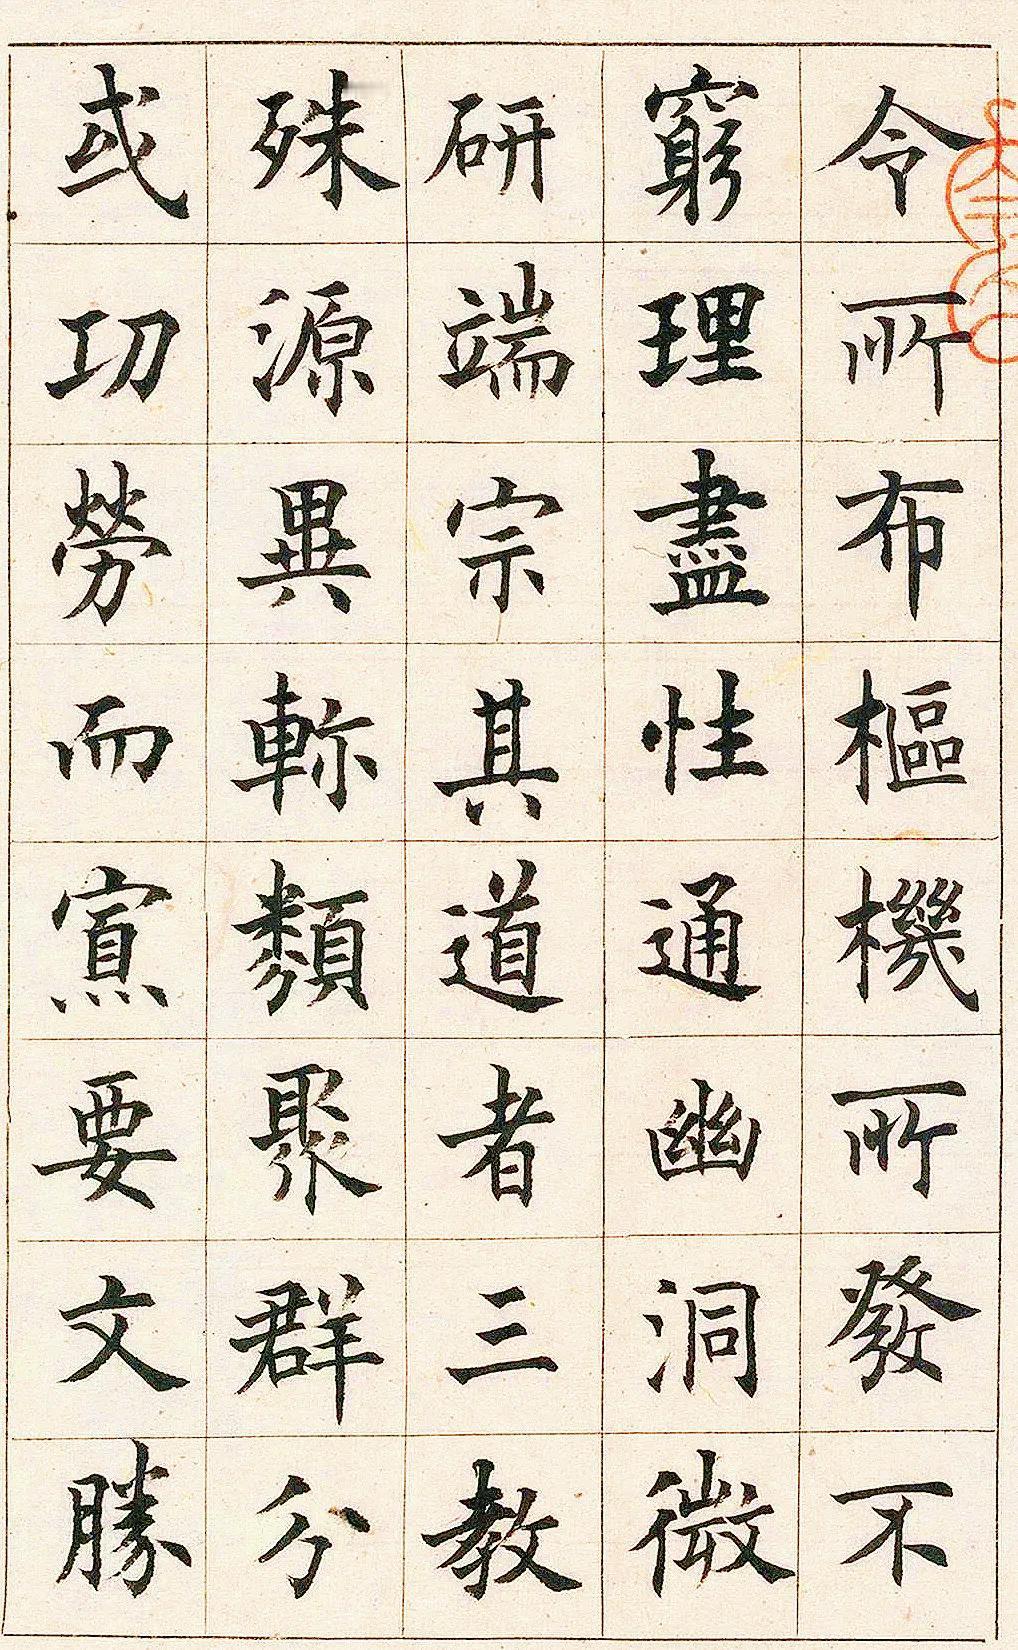 令所布樞機所發不
窮理盡性通幽洞微
研端宗其道者三教
殊源異軫類聚群分
或功勞而寡要文勝